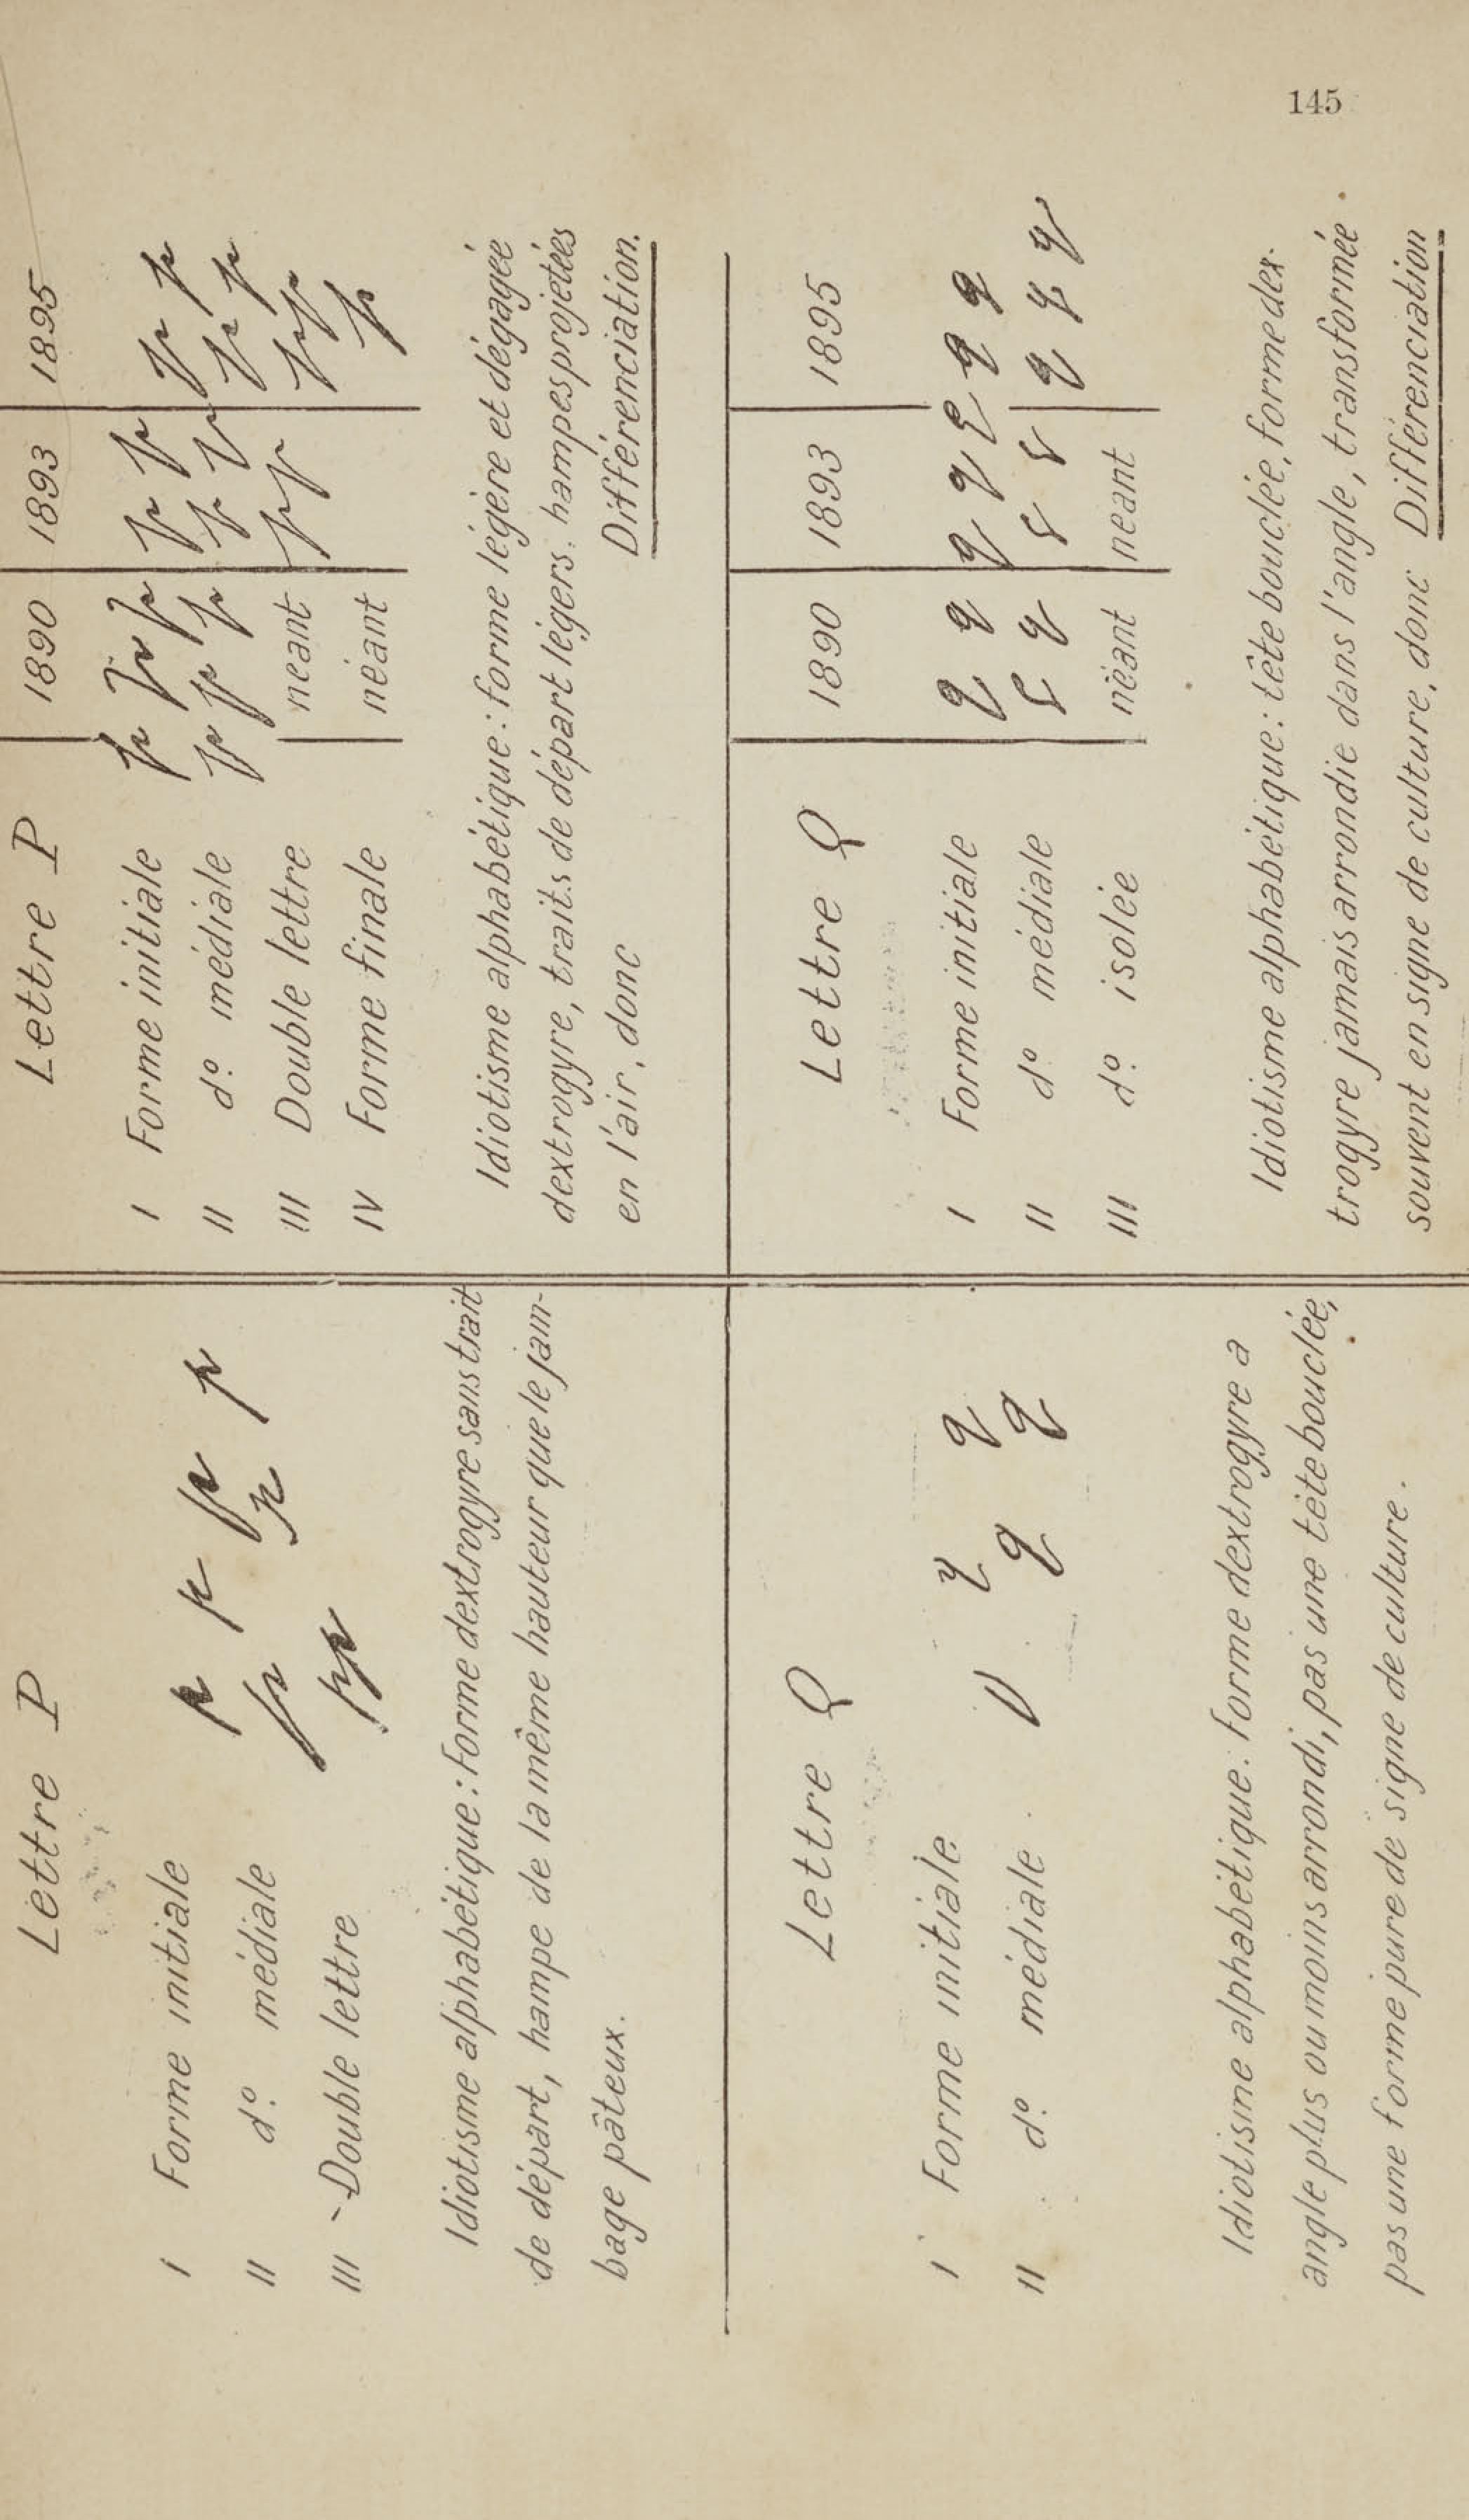 145
Lettre P
I Forme initiale
II d.º médiale
III - Double lettre
Idiotisme alphabétique : Forme dextrogyre sans trait
de départ, hampe de la même hauteur que le jam-
bage pâteux.
Lettre P 1890 1893 1895
I Forme initiale p p p p p p p
II d.º médiale p p p p p p p
III Double lettre néant pp pp
IV Forme finale néant p
Idiotisme alphabétique : forme légère et dégagée
dextrogyre, traits de départ légers. hampes projetées
en l'air, donc Différenciation.
Lettre Q
I Forme initiale q q
II d.º médiale q q
Idiotisme alphabétique : forme dextrogyre a
angle plus ou moins arrondi, pas une tête bouclée,
pas une forme pure de signe de culture.
Lettre Q 1890 1893 1895
I Forme initiale q q q q q q q
II d.º médiale q q q q q q q
III d.º isolée néant neant
Idiotisme alphabétique : tête bouclée, forme dex-
trogyre jamais arrondie dans l'angle, transformée
souvent en signe de culture, donc Différenciation